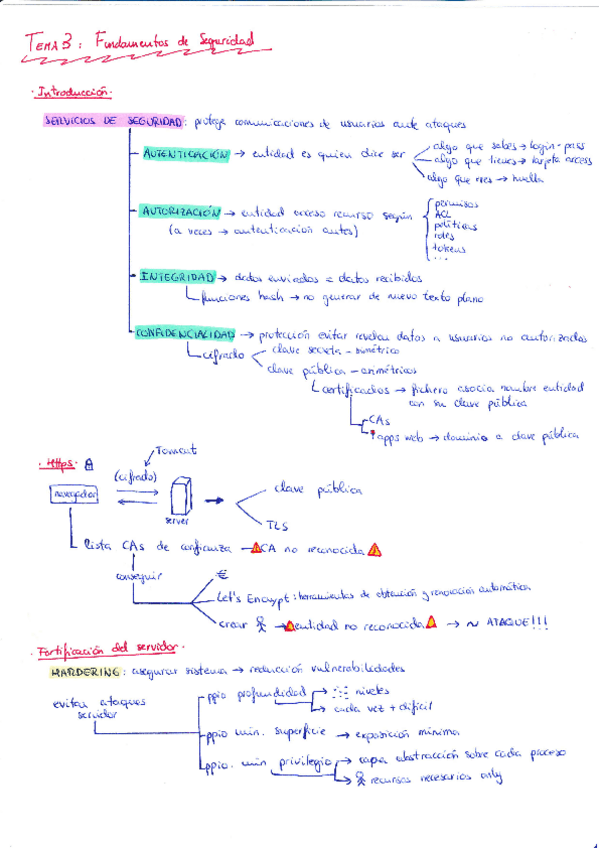 TEMA 3: Fundamentos de Seguridad
· Introducción ·
SERVICIOS DE SEGURIDAD: protege comunicaciones de usuarios ante ataques
AUTENTICACIÓN → entidad es quien dice ser
algo que sabes → login-pass
algo que tienes → tarjeta access
algo que eres → huella
AUTORIZACIÓN → entidad acceso recurso según
(a veces → autenticación antes)
permisos
ACL
políticas
roles
tokens
...
INTEGRIDAD → datos enviados = datos recibidos
funciones hash → no generar de nuevo texto plano
CONFIDENCIALIDAD → protección evitar revelar datos a usuarios no autorizados
cifrado
clave secreta - simétrico
clave pública - asimétricos
certificados → fichero asocia nombre entidad
con su clave pública
CAs
apps web → dominio a clave pública
· Https ·
Tomcat
(cifrado)
navegador
server
clave pública
TLS
lista CAs de confianza → CA no reconocida
conseguir
€
Let's Encrypt: herramientas de obtención y renovación automática
crear → entidad no reconocida → ~ ATAQUE!!!
· Fortificación del servidor ·
HARDERING: asegurar sistema → reducción vulnerabilidades
evitar ataques
servidor
ppio profundidad
→ niveles
→ cada vez + difícil
ppio min. superficie → exposición mínima
ppio. min privilegio
→ capa abstracción sobre cada proceso
→ recursos necesarios only